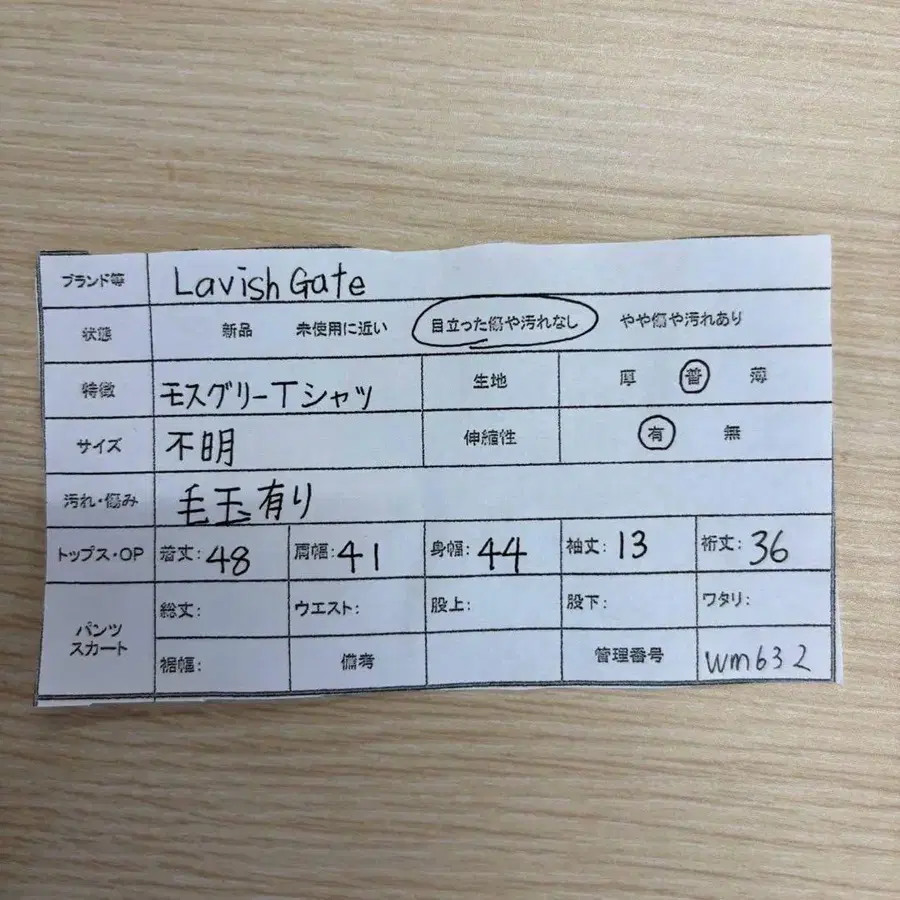 ブランド等 Lavish Gate
状態 新品 未使用に近い 目立った傷や汚れなし やや傷や汚れあり
特徴 モスグリーTシャツ 生地 厚 普 薄
サイズ 不明 伸縮性 有 無
汚れ・傷み 毛玉有り
トップス・OP 着丈:48 肩幅:41 身幅:44 袖丈:13 裄丈:36
パンツ スカート 総丈: ウエスト: 股上: 股下: ワタリ:
裾幅: 備考 管理番号 wm632